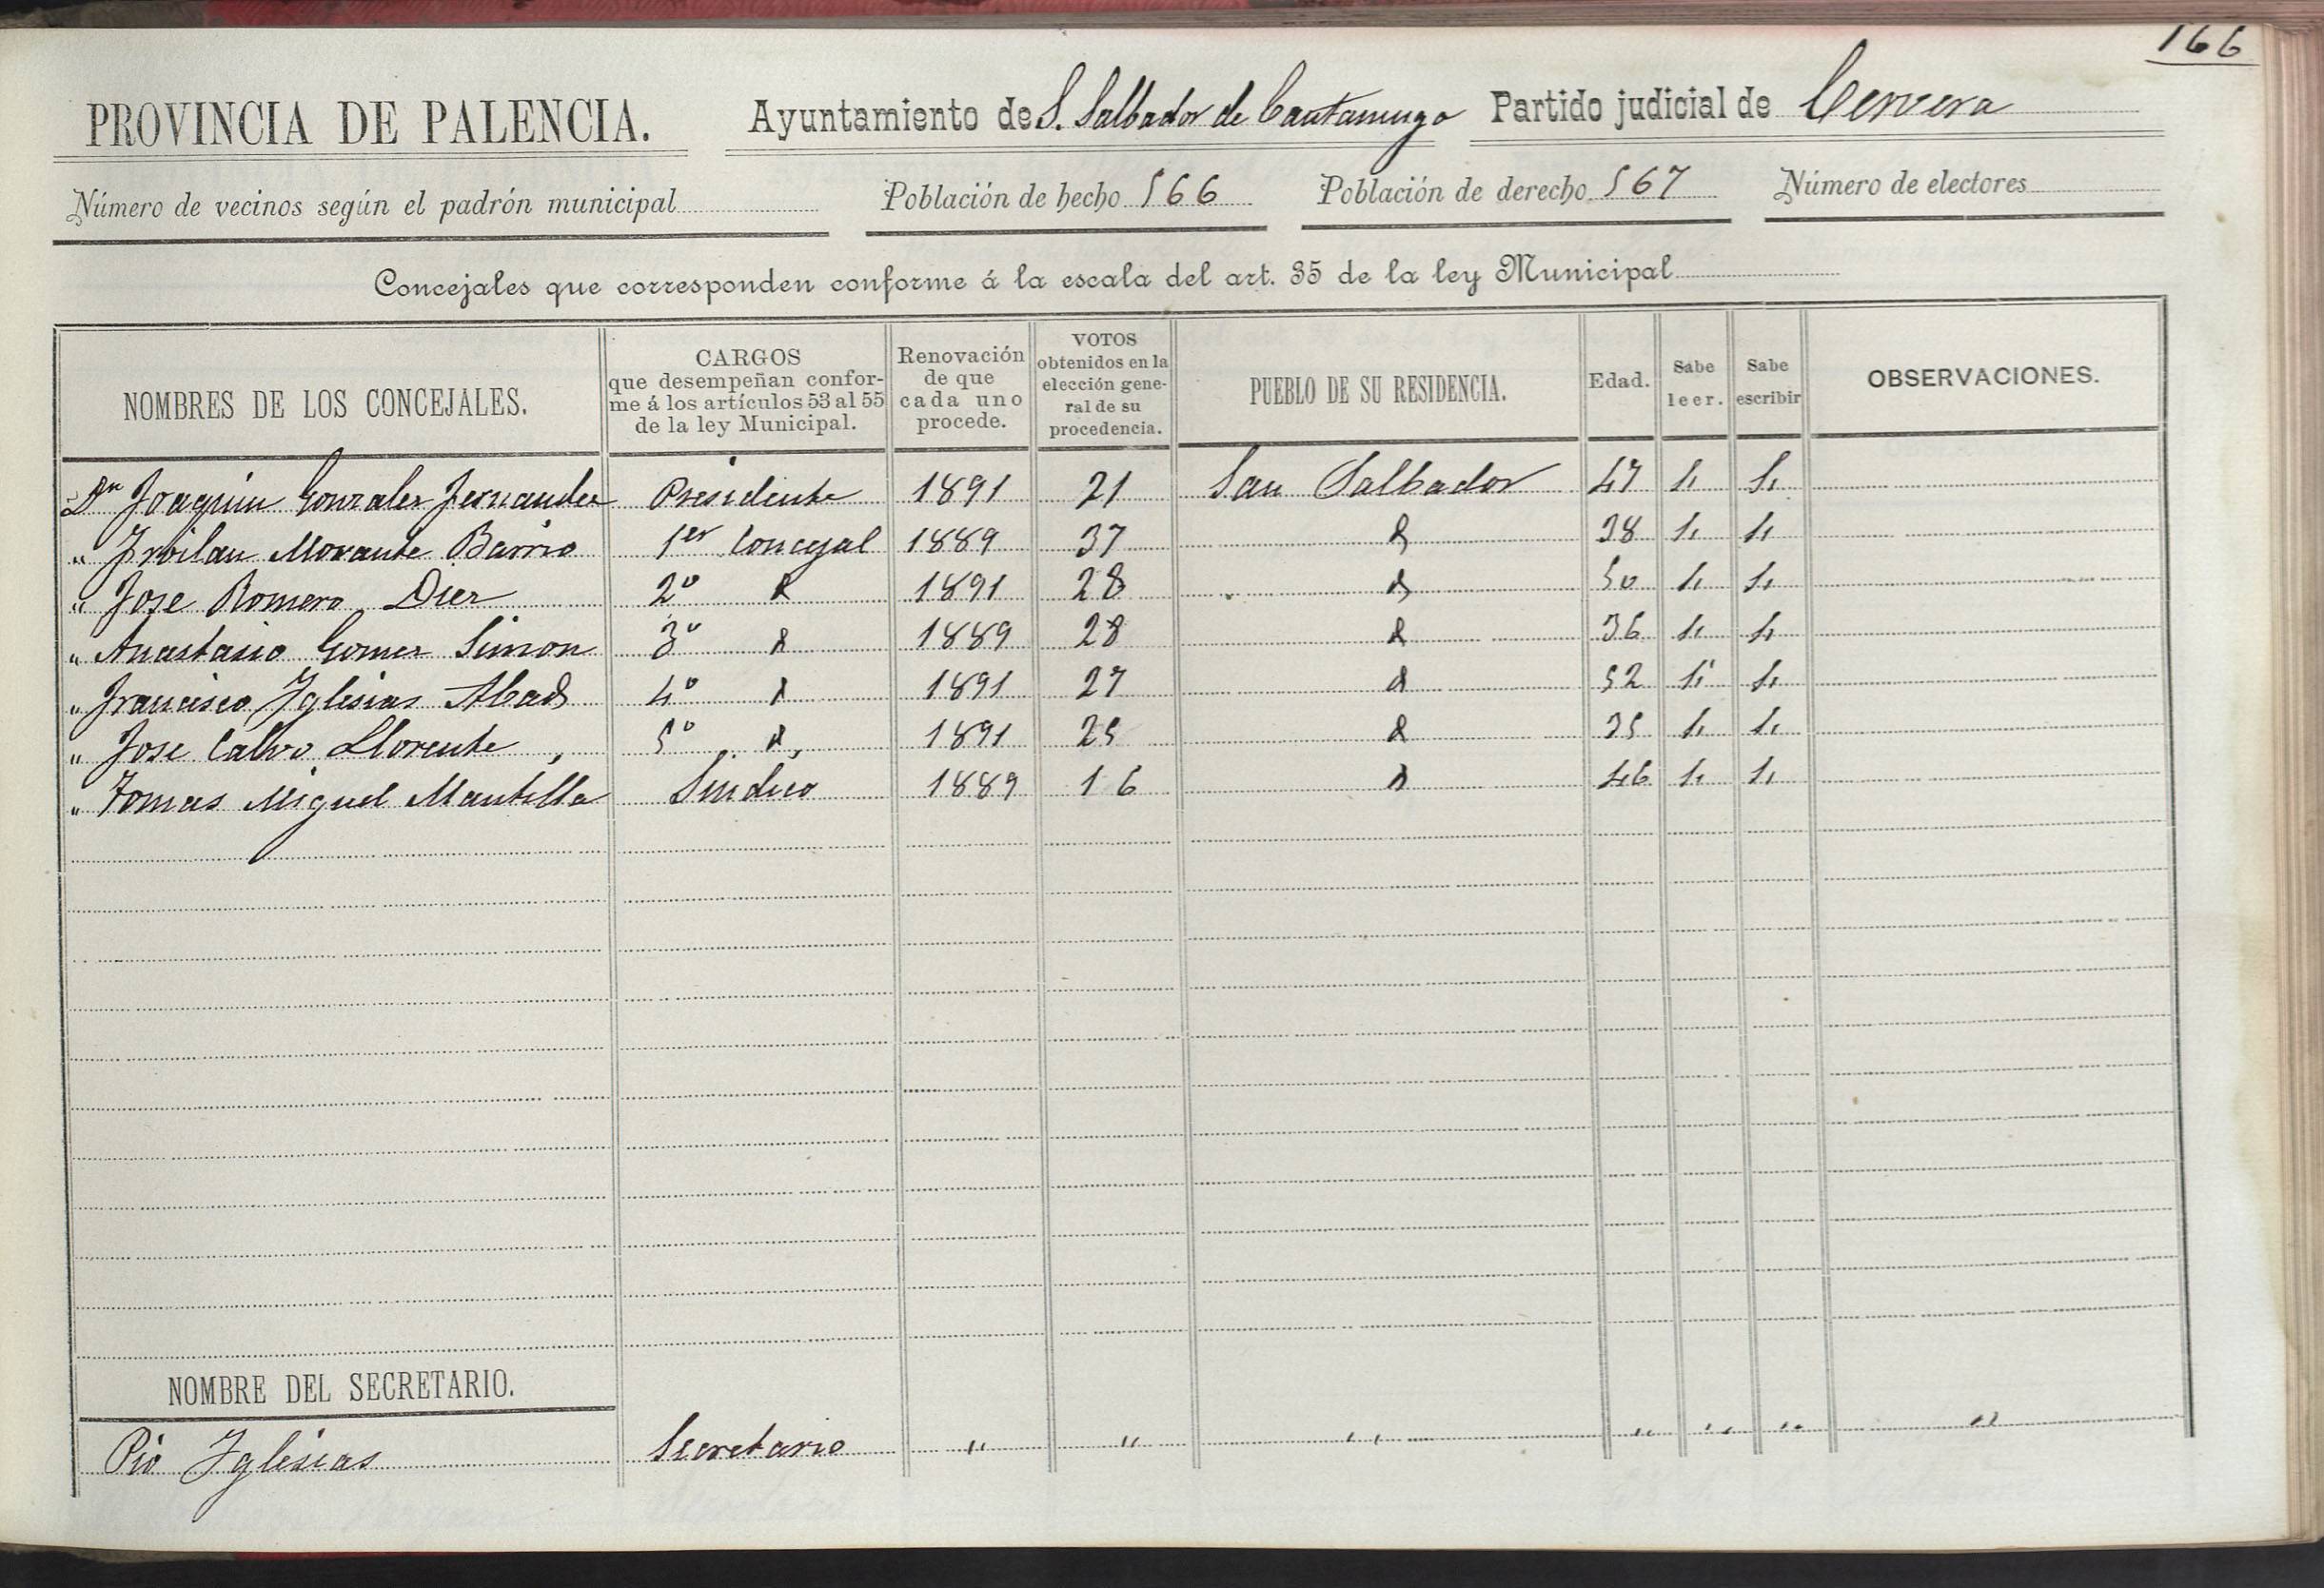 166
PROVINCIA DE PALENCIA. Ayuntamiento de S. Salbador de Cantamugo Partido judicial de Cervera
Número de vecinos según el padrón municipal Población de hecho 566 Población de derecho 567 Número de electores
Concejales que corresponden conforme á la escala del art. 35 de la ley Municipal
NOMBRES DE LOS CONCEJALES. CARGOS que desempeñan conforme á los artículos 53 al 55 de la ley Municipal. Renovación de que cada uno procede. VOTOS obtenidos en la elección general de su procedencia. PUEBLO DE SU RESIDENCIA. Edad. Sabe leer. Sabe escribir OBSERVACIONES.
Dn Joaquin Gonzalez Fernandez Presidente 1891 21 San Salbador 47 Si Si
" Froilan Morante Barrio 1er Concejal 1889 37 & 38 Si Si
" Jose Romero Diez 2º & 1891 28 & 50 Si Si
" Anastasio Gomez Simon 3º & 1889 28 & 36 Si Si
" Francisco Yglesias Abad 4º & 1891 27 & 52 Si Si
" Jose Calvo Llorente, 5º &, 1891 25 & 35 Si Si
" Tomas Miguel Mantilla Sindico 1889 16 & 46 Si Si
NOMBRE DEL SECRETARIO.
Pio Yglesias Secretario " " " " " " "